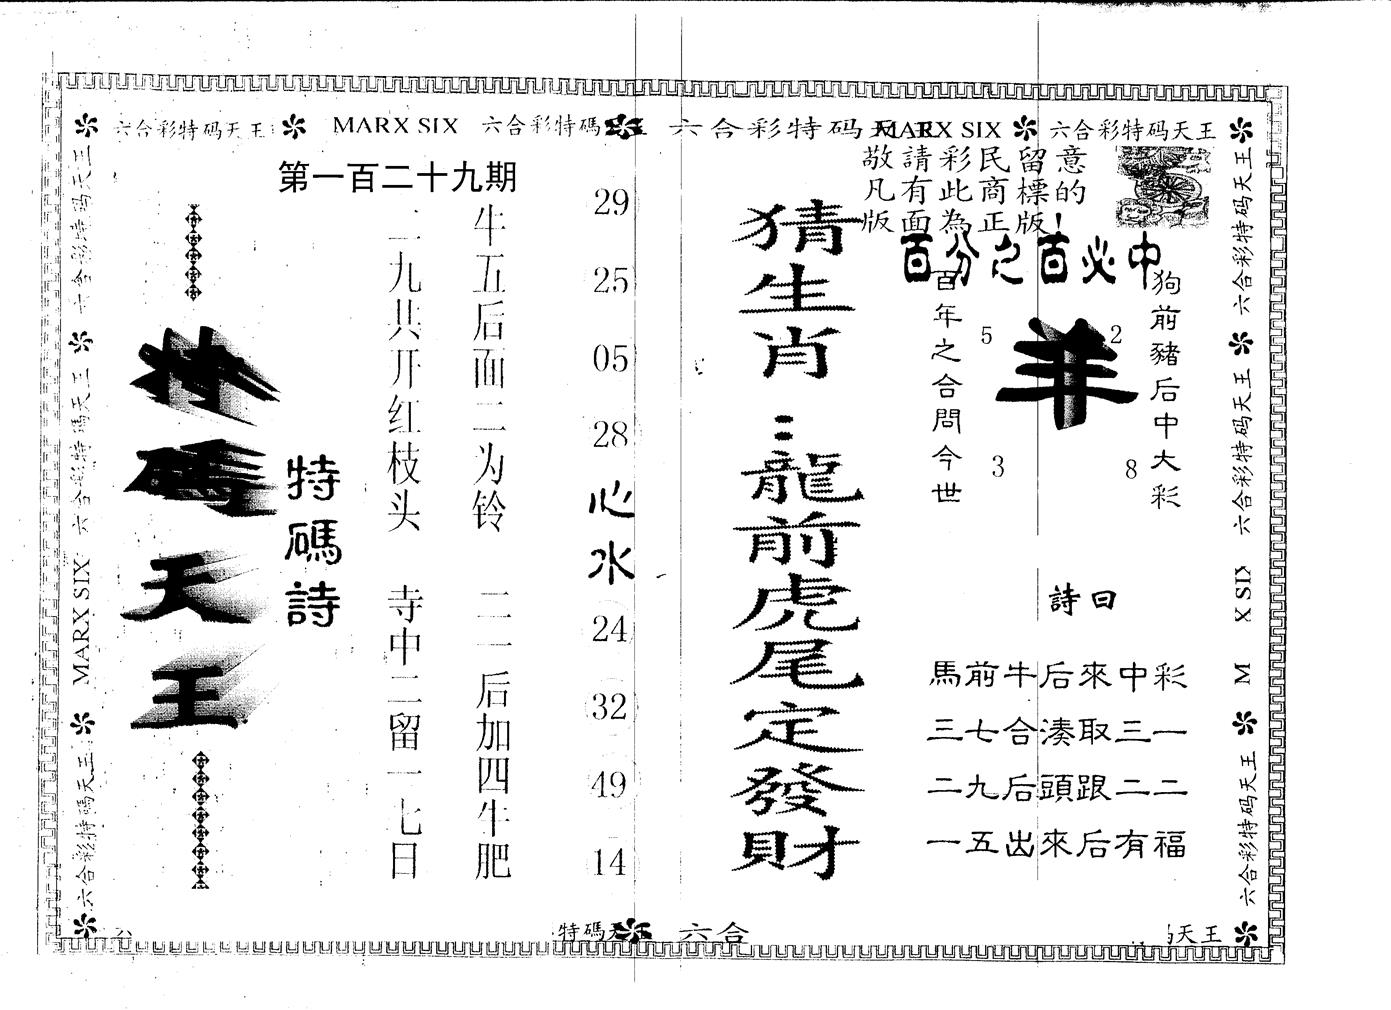 六合彩特码天王
MARX SIX
六合彩特碼
六合彩特码天王
MARX SIX
六合彩特码天王
敬請彩民留意
凡有此商標的
版面為正版!
第一百二十九期
特碼天王
特碼詩
二九共开红枝头
寺中二留一七日
牛五后面二为铃
二一后加四牛肥
29
25
05
28
心水
24
32
49
14
猜生肖:龍前虎尾定發財
百分之百必中
百年之合問今世
狗前豬后中大彩
羊
5
2
3
8
詩曰
馬前牛后來中彩
三七合湊取三一
二九后頭跟二二
一五出來后有福
六合彩特码天王
六合彩特碼天王
MARX SIX
六合彩特碼天王
六合彩特码天王
六合彩特码天王
X SIX
M
六合彩特码天王
特碼天
六合
天王